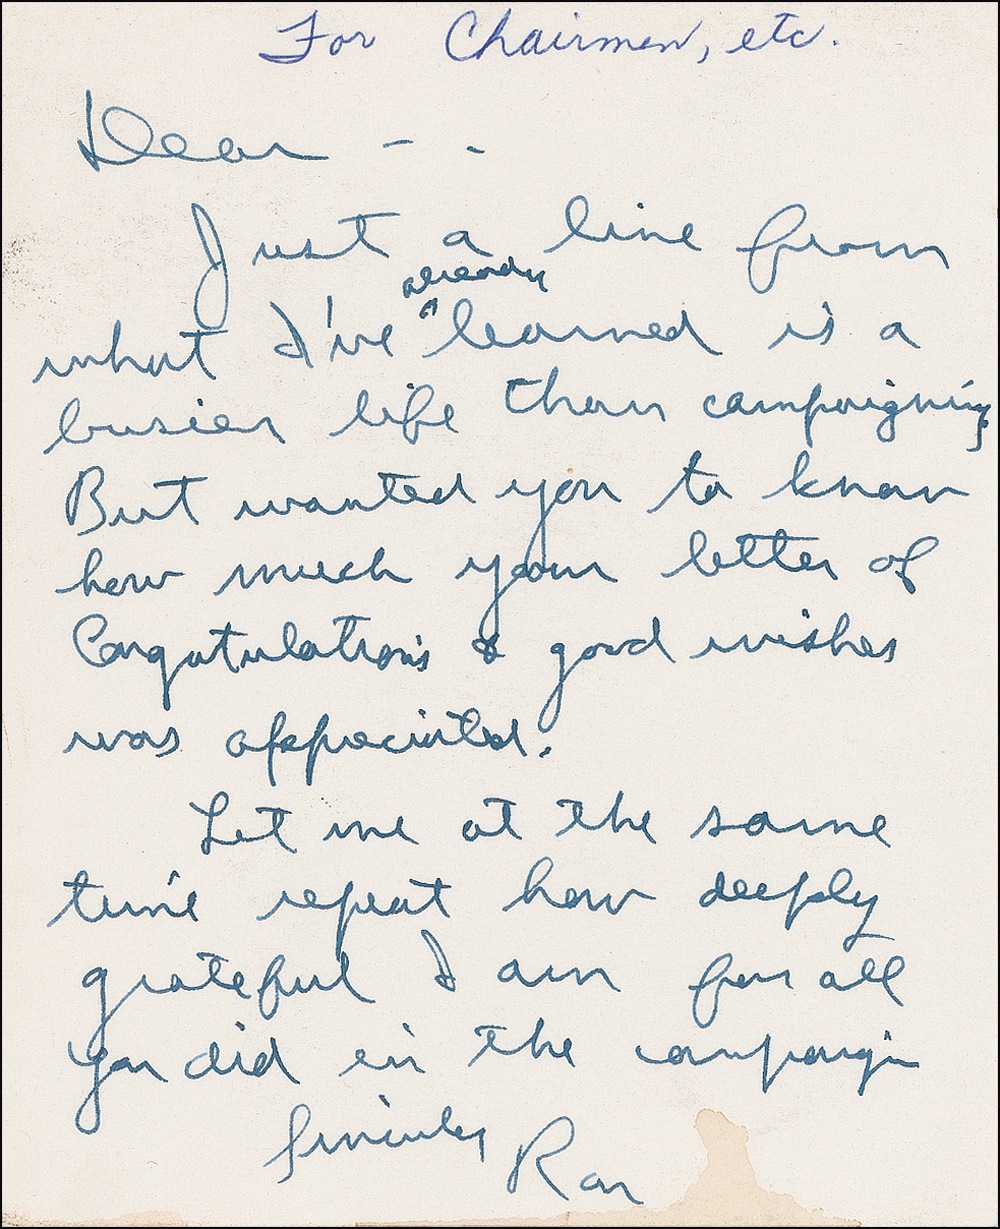 For Chairmen, etc.
Dear - -
Just a line from
already
what I've ^ learned is a
busier life than campaigning.
But wanted you to know
how much your letter of
Congratulations & good wishes
was appreciated.
Let me at the same
time repeat how deeply
grateful I am for all
you did in the campaign
Sincerely Ron